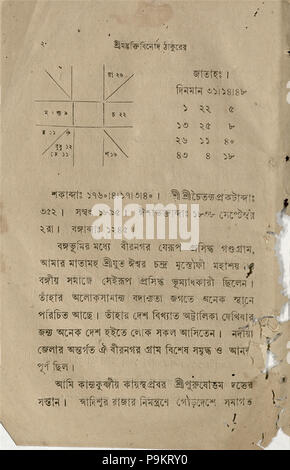 ২
শ্রীমদ্ভক্তিবিনোদ ঠাকুরের
জাতাহঃ।
দিনমান ৩১।১৪।৪৮
রা ২৬
চ ২২
১ ২২ ৫
৩ ২৫ ৮
২৬ ১১ ৪০
৪৩ ৪ ১৮
বুবু ১২
শকাব্দাঃ ১৭৬০।৪।১৭।৩।৪০। শ্রীশ্রীচৈতন্যপ্রকটাব্দাঃ
৩৫২। সম্বৎ ১৮৯৫। সেপ্টেম্বর
২রা। বঙ্গাব্দাঃ ১২৪৫।
বঙ্গভূমির মধ্যে বীরনগর যেরূপ প্রসিদ্ধ গণ্ডগ্রাম,
আমার মাতামহ শ্রীযুত ঈশ্বর চন্দ্র মুস্তৌফী মহাশয়
বঙ্গীয় সমাজে সেইরূপ প্রসিদ্ধ ভূম্যধিকারী ছিলেন।
তাঁহার অলোকসামান্য বদান্যতা জগতে অনেক স্থানে
পরিচিত আছে। তাঁহার দেশ বিখ্যাত অট্টালিকা দেখিবার
জন্য অনেক দেশ হইতে লোক সকল আসিতেন। নদীয়া
জেলার অন্তর্গত ঐ বীরনগর গ্রাম বিশেষ সমৃদ্ধ ও আনন্দ
পূর্ণ ছিল।
আমি কান্যকুব্জীয় কায়স্থপ্রবর শ্রীপুরুষোত্তম দত্তের
সন্তান। আদিশূর রাজার নিমন্ত্রণে গৌড়দেশে সমাগত